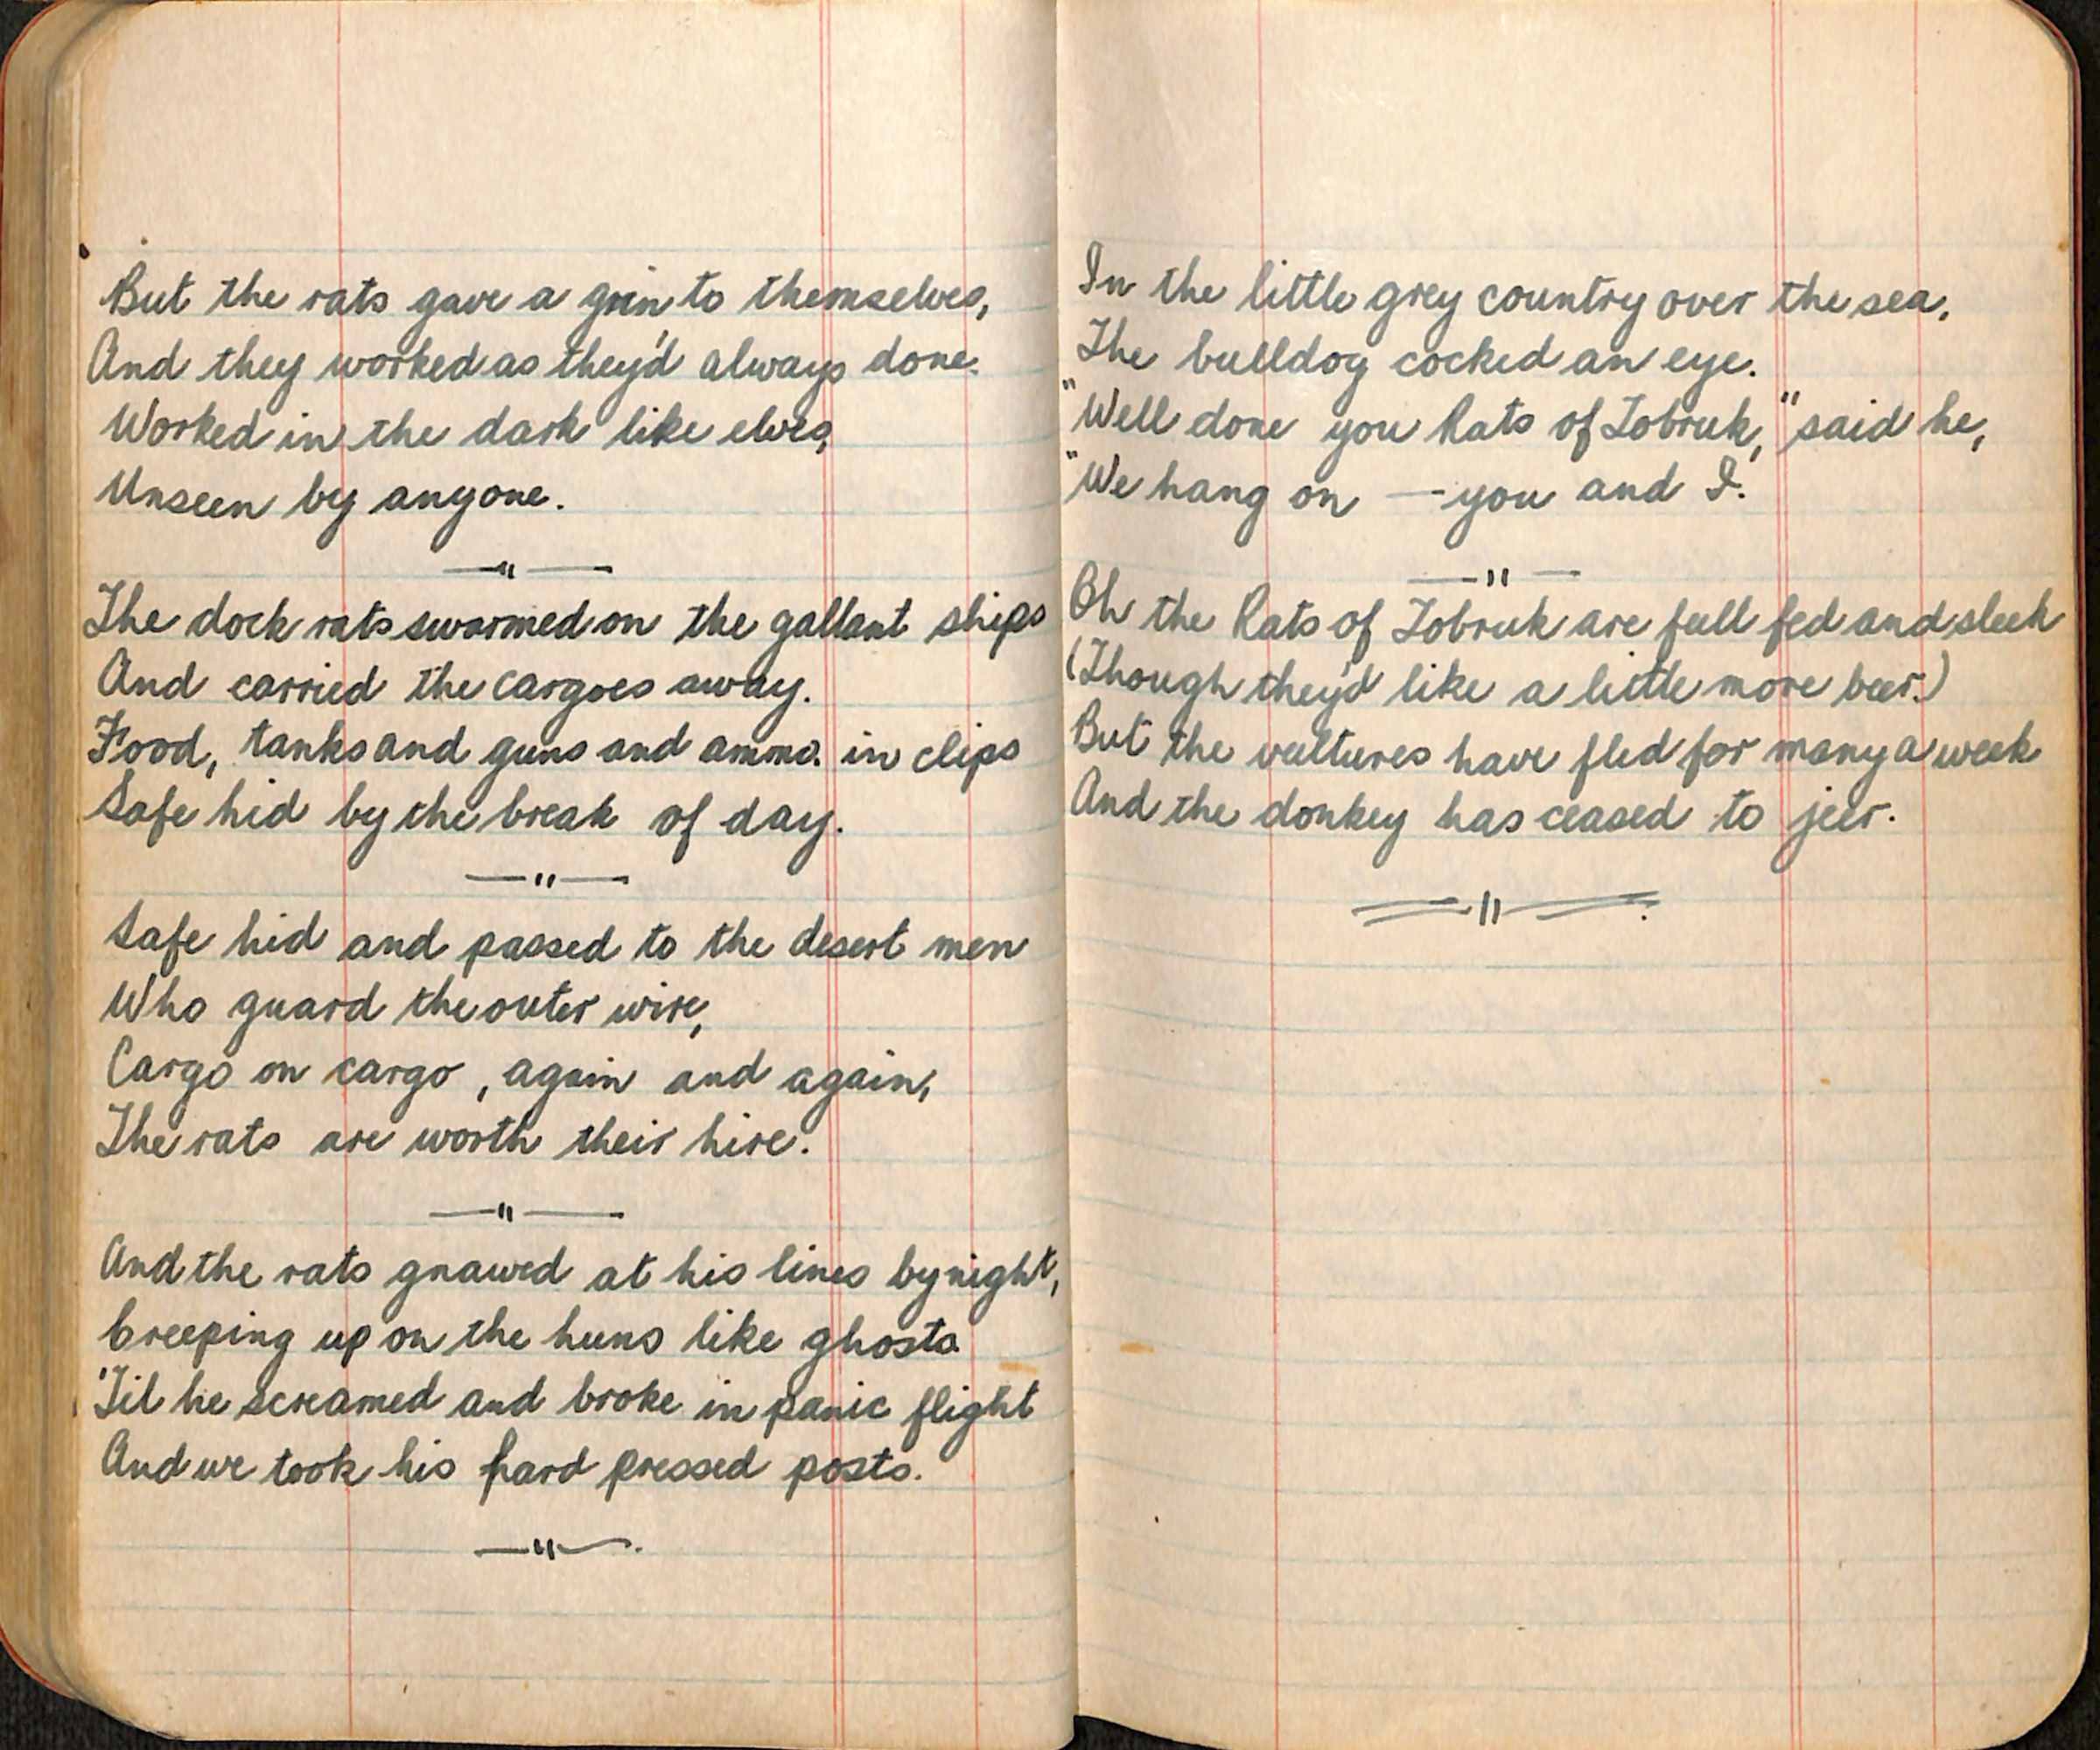 But the rats gave a grin to themselves,
And they worked as they'd always done.
Worked in the dark like elves,
Unseen by anyone.
— " —
The dock rats swarmed on the gallant ships
And carried the cargoes away.
Food, tanks and guns and ammo. in clips
Safe hid by the break of day.
— " —
Safe hid and passed to the desert men
Who guard the outer wire,
Cargo on cargo, again and again,
The rats are worth their hire.
— " —
And the rats gnawed at his lines by night,
Creeping up on the huns like ghosts
'Til he screamed and broke in panic flight
And we took his hard pressed posts.
— " —
In the little grey country over the sea,
The bulldog cocked an eye.
"Well done you Rats of Tobruk," said he,
"We hang on — you and I.
— " —
Oh the Rats of Tobruk are full fed and sleek
(Though they'd like a little more beer.)
But the vultures have fled for many a week
And the donkey has ceased to jeer.
= " =